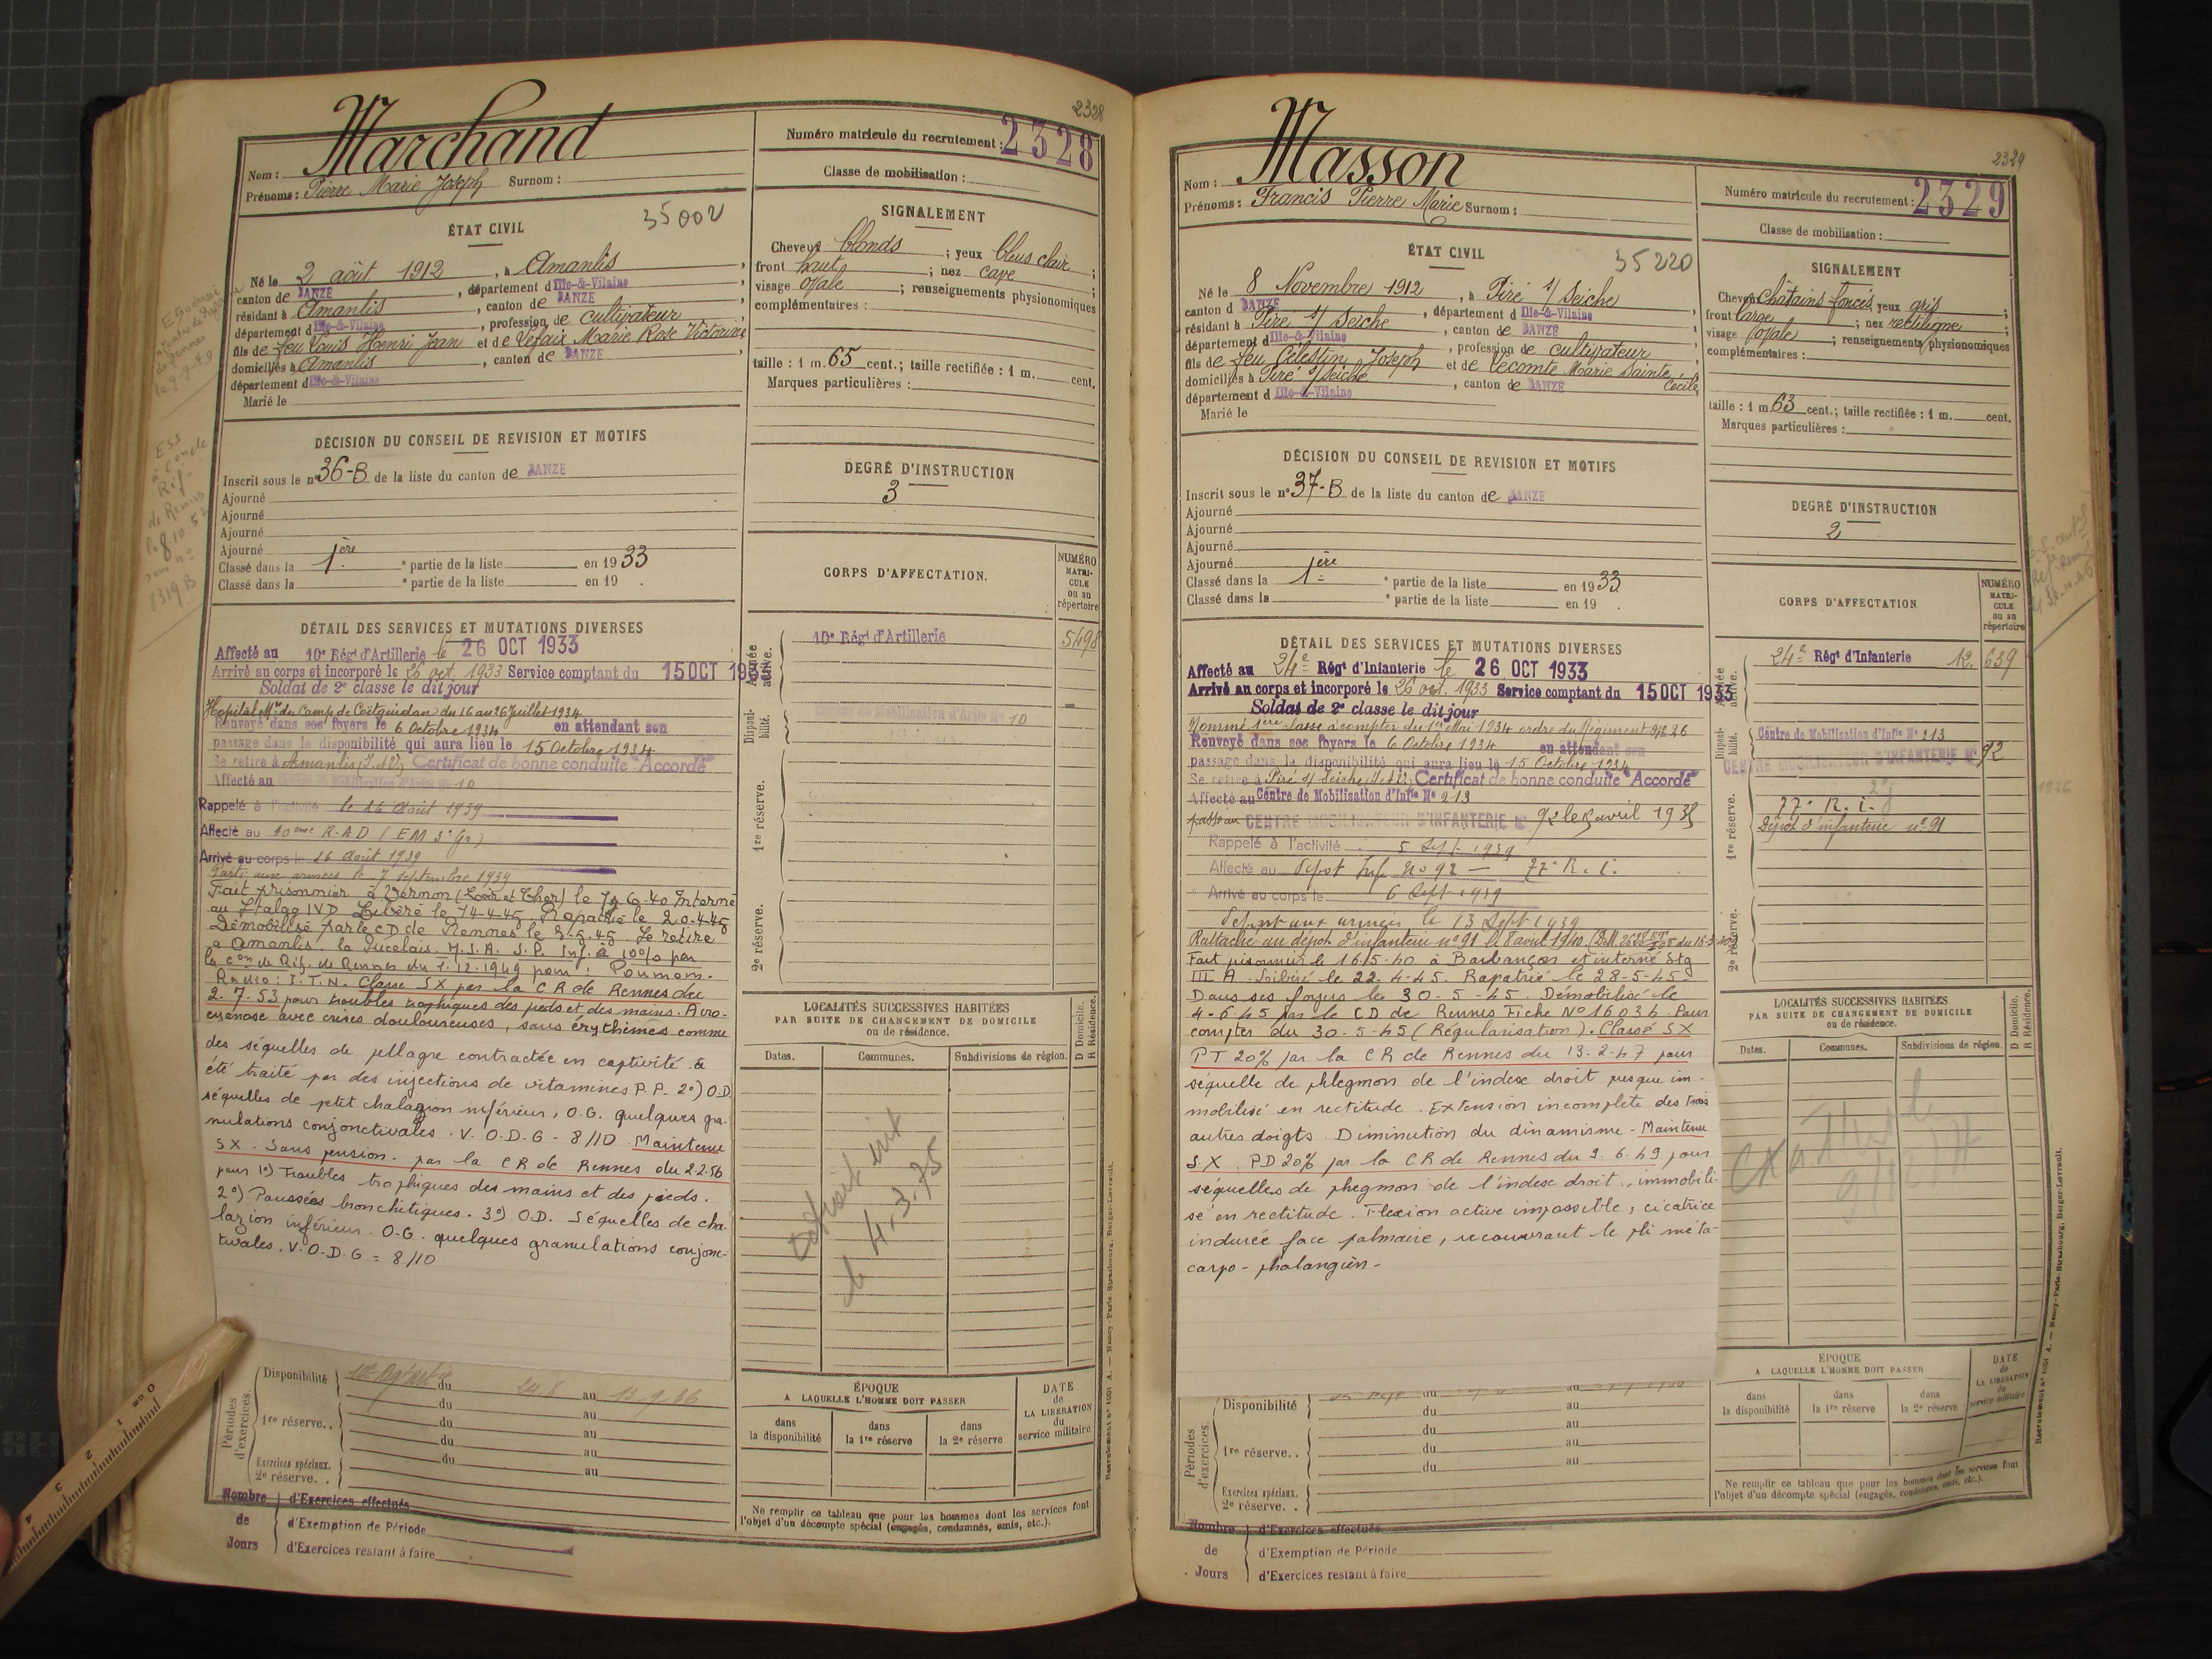 2328
Marchand
Nom :
Prénoms : Pierre Marie Joseph Surnom :
Numéro matricule du recrutement : 2328
Classe de mobilisation :
ÉTAT CIVIL
35002
Né le 2 août 1912, à Amanlis,
canton de JANZE, département d Ille-&-Vilaine
résidant à Amanlis, canton de JANZE
département d Ille-&-Vilaine, profession de cultivateur
fils de feu Louis Henri Jean et de Vefaix Marie Rose Victorine
domiciliés à Amanlis, canton de JANZE
département d Ille-&-Vilaine
Marié le
SIGNALEMENT
Cheveux blonds ; yeux bleus clair ;
front haut ; nez cave ;
visage ovale ; renseignements physionomiques
complémentaires :
taille : 1 m. 65 cent.; taille rectifiée : 1 m. cent.
Marques particulières :
DÉCISION DU CONSEIL DE REVISION ET MOTIFS
Inscrit sous le n° 36-B de la liste du canton de JANZE
Ajourné
Ajourné
Ajourné
Ajourné
Classé dans la 1ère partie de la liste en 1933
Classé dans la partie de la liste en 19 .
DEGRÉ D'INSTRUCTION
3
CORPS D'AFFECTATION.
NUMÉRO MATRI-CULE ou au répertoire
Armée active.
10e Régt d'Artillerie 5498
Disponi-bilité.
Centre de Mobilisation d'Artie N° 10
1re réserve.
2e réserve.
DÉTAIL DES SERVICES ET MUTATIONS DIVERSES
Affecté au 10e Régt d'Artillerie le 26 OCT 1933
Arrivé au corps et incorporé le 26 oct. 1933 Service comptant du 15 OCT 1933
Soldat de 2e classe le dit jour
Hôpital Mre du Camp de Coëtquidan du 16 au 26 Juillet 1934
Renvoyé dans ses foyers le 6 Octobre 1934 en attendant son
passage dans la disponibilité qui aura lieu le 15 Octobre 1934
Se retire à Amanlis (I.et V.) Certificat de bonne conduite "Accordé"
Affecté au Centre de Mobilisation d'Artie N° 10
Rappelé à l'activité le 26 Août 1939
Affecté au 10eme R.A.D (EM 3e Gr)
Arrivé au corps le 26 Août 1939
Parti aux armées le 7 septembre 1939
Fait prisonnier à Vernon (Loir et Cher) le 19-6-40 Interné
au Stalag IV D Libéré le 14-4-45 Rapatrié le 20-4-45
Démobilisé par le CD de Rennes le 2-5-45. Se retire
à Amanlis. la Pucelais. M.S.A. S.P. Inf. à 10% par
la Con de Réf. de Rennes du 7.12.1949 pour : Poumons.
Radio : I.T.N. Classé SX par la CR de Rennes du
2.7.53 pour troubles trophiques des pieds et des mains. Acro-
cyanose avec crises douloureuses, sans érythèmes comme
des séquelles de pellagre contractée en captivité. a
été traité par des injections de vitamines P.P. 2°) O.D.
séquelles de petit chalazion inférieur, O.G. quelques gra-
nulations conjonctivales. V. O.D.G - 8/10. Maintenu
SX. Sans pension. par la CR de Rennes du 2.2.56
pour 1°) Troubles trophiques des mains et des pieds.
2°) Poussées bronchitiques. 3°) O.D. Séquelles de cha-
lazion inférieur. O.G. quelques granulations conjonc-
tivales. V.O.D.G = 8/10
LOCALITÉS SUCCESSIVES HABITÉES
PAR SUITE DE CHANGEMENT DE DOMICILE
ou de résidence.
Dates. Communes. Subdivisions de région. D Domicile. R Résidence.
le 4.3.75
Périodes d'exercices.
Disponibilité du 24 8 au 13-9-36
du au
1re réserve. . du au
du au
Exercices spéciaux. du au
2e réserve. .
ÉPOQUE
A LAQUELLE L'HOMME DOIT PASSER
dans la disponibilité
dans la 1re réserve
dans la 2e réserve
DATE de LA LIBÉRATION du service militaire
Ne remplir ce tableau que pour les hommes dont les services font
l'objet d'un décompte spécial (engagés, condamnés, omis, etc.).
Nombre de Jours
d'Exercices effectués
d'Exemption de Période
d'Exercices restant à faire
2329
Masson
Nom :
Prénoms : Francis Pierre Marie Surnom :
Numéro matricule du recrutement : 2329
Classe de mobilisation :
ÉTAT CIVIL
35220
Né le 8 Novembre 1912, à Piré s/ Seiche
canton d JANZE, département d Ille-&-Vilaine
résidant à Piré s/ Seiche, canton de JANZE
département d Ille-&-Vilaine, profession de cultivateur
fils de feu Célestin Joseph et de Lecomte Marie Sainte Cécile
domiciliés à Piré s/ Seiche, canton de JANZE
département d Ille-&-Vilaine
Marié le
SIGNALEMENT
Cheveux châtains foncés yeux gris ;
front large ; nez rectiligne ;
visage ovale ; renseignements physionomiques
complémentaires :
taille : 1 m. 63 cent.; taille rectifiée : 1 m. cent.
Marques particulières :
DÉCISION DU CONSEIL DE REVISION ET MOTIFS
Inscrit sous le n° 37-B de la liste du canton de JANZE
Ajourné
Ajourné
Ajourné
Ajourné
Classé dans la 1ère partie de la liste en 1933
Classé dans la partie de la liste en 19 .
DEGRÉ D'INSTRUCTION
2
CORPS D'AFFECTATION
NUMÉRO MATRI-CULE ou au répertoire
Armée active.
24e Régt d'Infanterie 12. 639
Disponi-bilité.
Centre de Mobilisation d'Infie N° 213
CENTRE MOBILISATEUR D'INFANTERIE N° 92
1re réserve.
77e R.I.
Dépôt d'infanterie n° 91
2e réserve.
DÉTAIL DES SERVICES ET MUTATIONS DIVERSES
Affecté au 24e Régt d'Infanterie le 26 OCT 1933
Arrivé au corps et incorporé le 26 oct. 1933 Service comptant du 15 OCT 1933
Soldat de 2e classe le dit jour
Nommé 1ère classe à compter du 1er Mai 1934 ordre du Régiment
Renvoyé dans ses foyers le 6 Octobre 1934 en attendant son
passage dans la disponibilité qui aura lieu le 15 Octobre 1934
Se retire à Piré s/ Seiche (I.et V.) Certificat de bonne conduite "Accordé"
Affecté au Centre de Mobilisation d'Infie N° 213
passé au CENTRE MOBILISATEUR D'INFANTERIE N° 92 le avril 1935
Rappelé à l'activité 5 Sept 1939
Affecté au Dépôt Inf. N° 92 - 77e R.I.
Arrivé au corps le 6 Sept 1939
Départ aux armées le 13 Sept 1939
Rattaché au dépôt d'infanterie n° 91 le 8 avril 1940
Fait prisonnier le 16-5-40 à Barbançon et interné Stg
III A. Libéré le 22-4-45. Rapatrié le 28-5-45.
Dans ses foyers le 30-5-45. Démobilisé le
4-6-45 par le CD de Rennes Fiche N° 16034. Pour
compter du 30-5-45 (Régularisation). Classé SX
PT 20% par la CR de Rennes du 13-2-47 pour
séquelle de phlegmon de l'index droit presque im-
mobilisé en rectitude. Extension incomplète des trois
autres doigts. Diminution du dinamisme - Maintenu
S.X. PD 20% par la CR de Rennes du 9.6.49 pour
séquelles de phegmon de l'index droit, immobili-
sé en rectitude. Flexion active impossible, cicatrice
indurée face palmaire, recouvrant le pli méta-
carpo-phalangien -
LOCALITÉS SUCCESSIVES HABITÉES
PAR SUITE DE CHANGEMENT DE DOMICILE
ou de résidence.
Dates. Communes. Subdivisions de région. D Domicile. R Résidence.
Périodes d'exercices.
Disponibilité du au
du au
1re réserve. . du au
du au
Exercices spéciaux.
2e réserve. .
ÉPOQUE
A LAQUELLE L'HOMME DOIT PASSER
dans la disponibilité
dans la 1re réserve
dans la 2e réserve
DATE de LA LIBÉRATION du service militaire
Ne remplir ce tableau que pour les hommes dont les services font
l'objet d'un décompte spécial (engagés, condamnés, omis, etc.).
Nombre de Jours
d'Exercices effectués
d'Exemption de Période
d'Exercices restant à faire